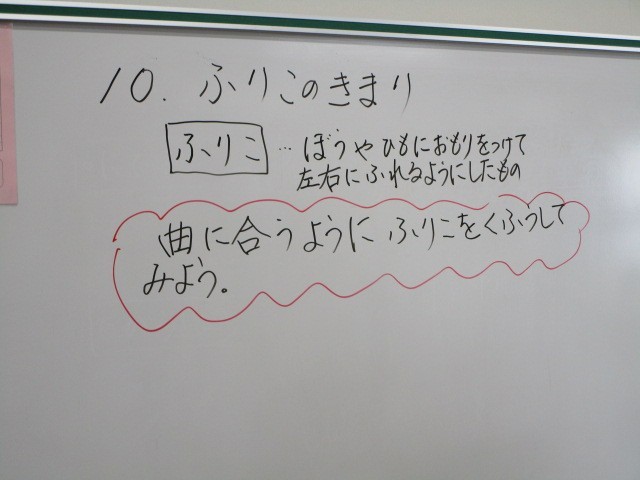 10. ふりこのきまり
ふりこ … ぼうやひもにおもりをつけて
左右にふれるようにしたもの
曲に合うようにふりこをくふうして
みよう。